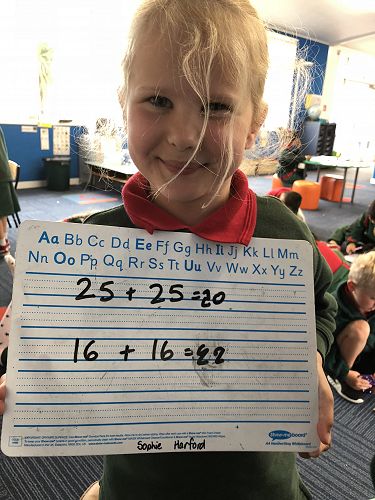 Aa Bb Cc Dd Ee Ff Gg Hh Ii Jj Kk Ll Mm
Nn Oo Pp Qq Rr Ss Tt Uu Vv Ww Xx Yy Zz
25 + 25 =
16 + 16 =
show-me board
A4 Handwriting Whiteboard
Sophie Harford